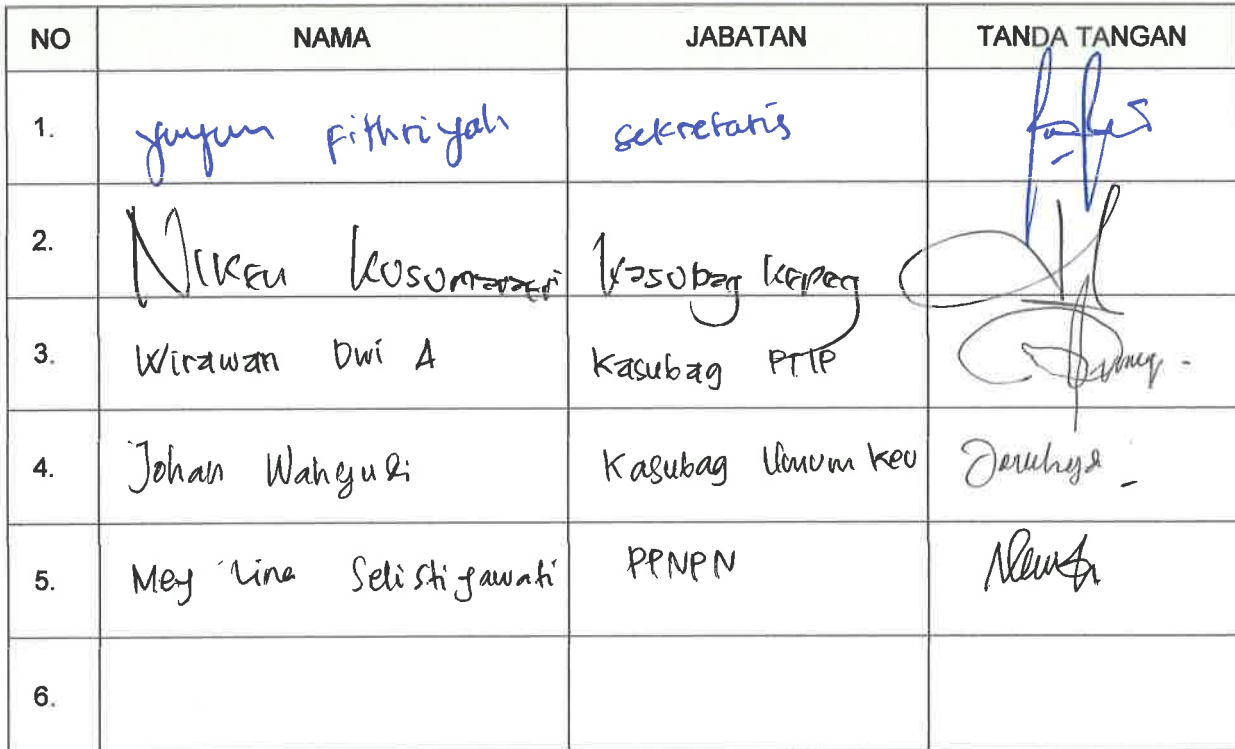 NO NAMA JABATAN TANDA TANGAN
1. Yuyun Fithriyah Sekretaris
2. Niken Kasubag Kepeg
3. Wirawan Dwi A Kasubag PTIP
4. Johan Wahyudi Kasubag Umum Keu
5. Mey Lina PPNPN
6.